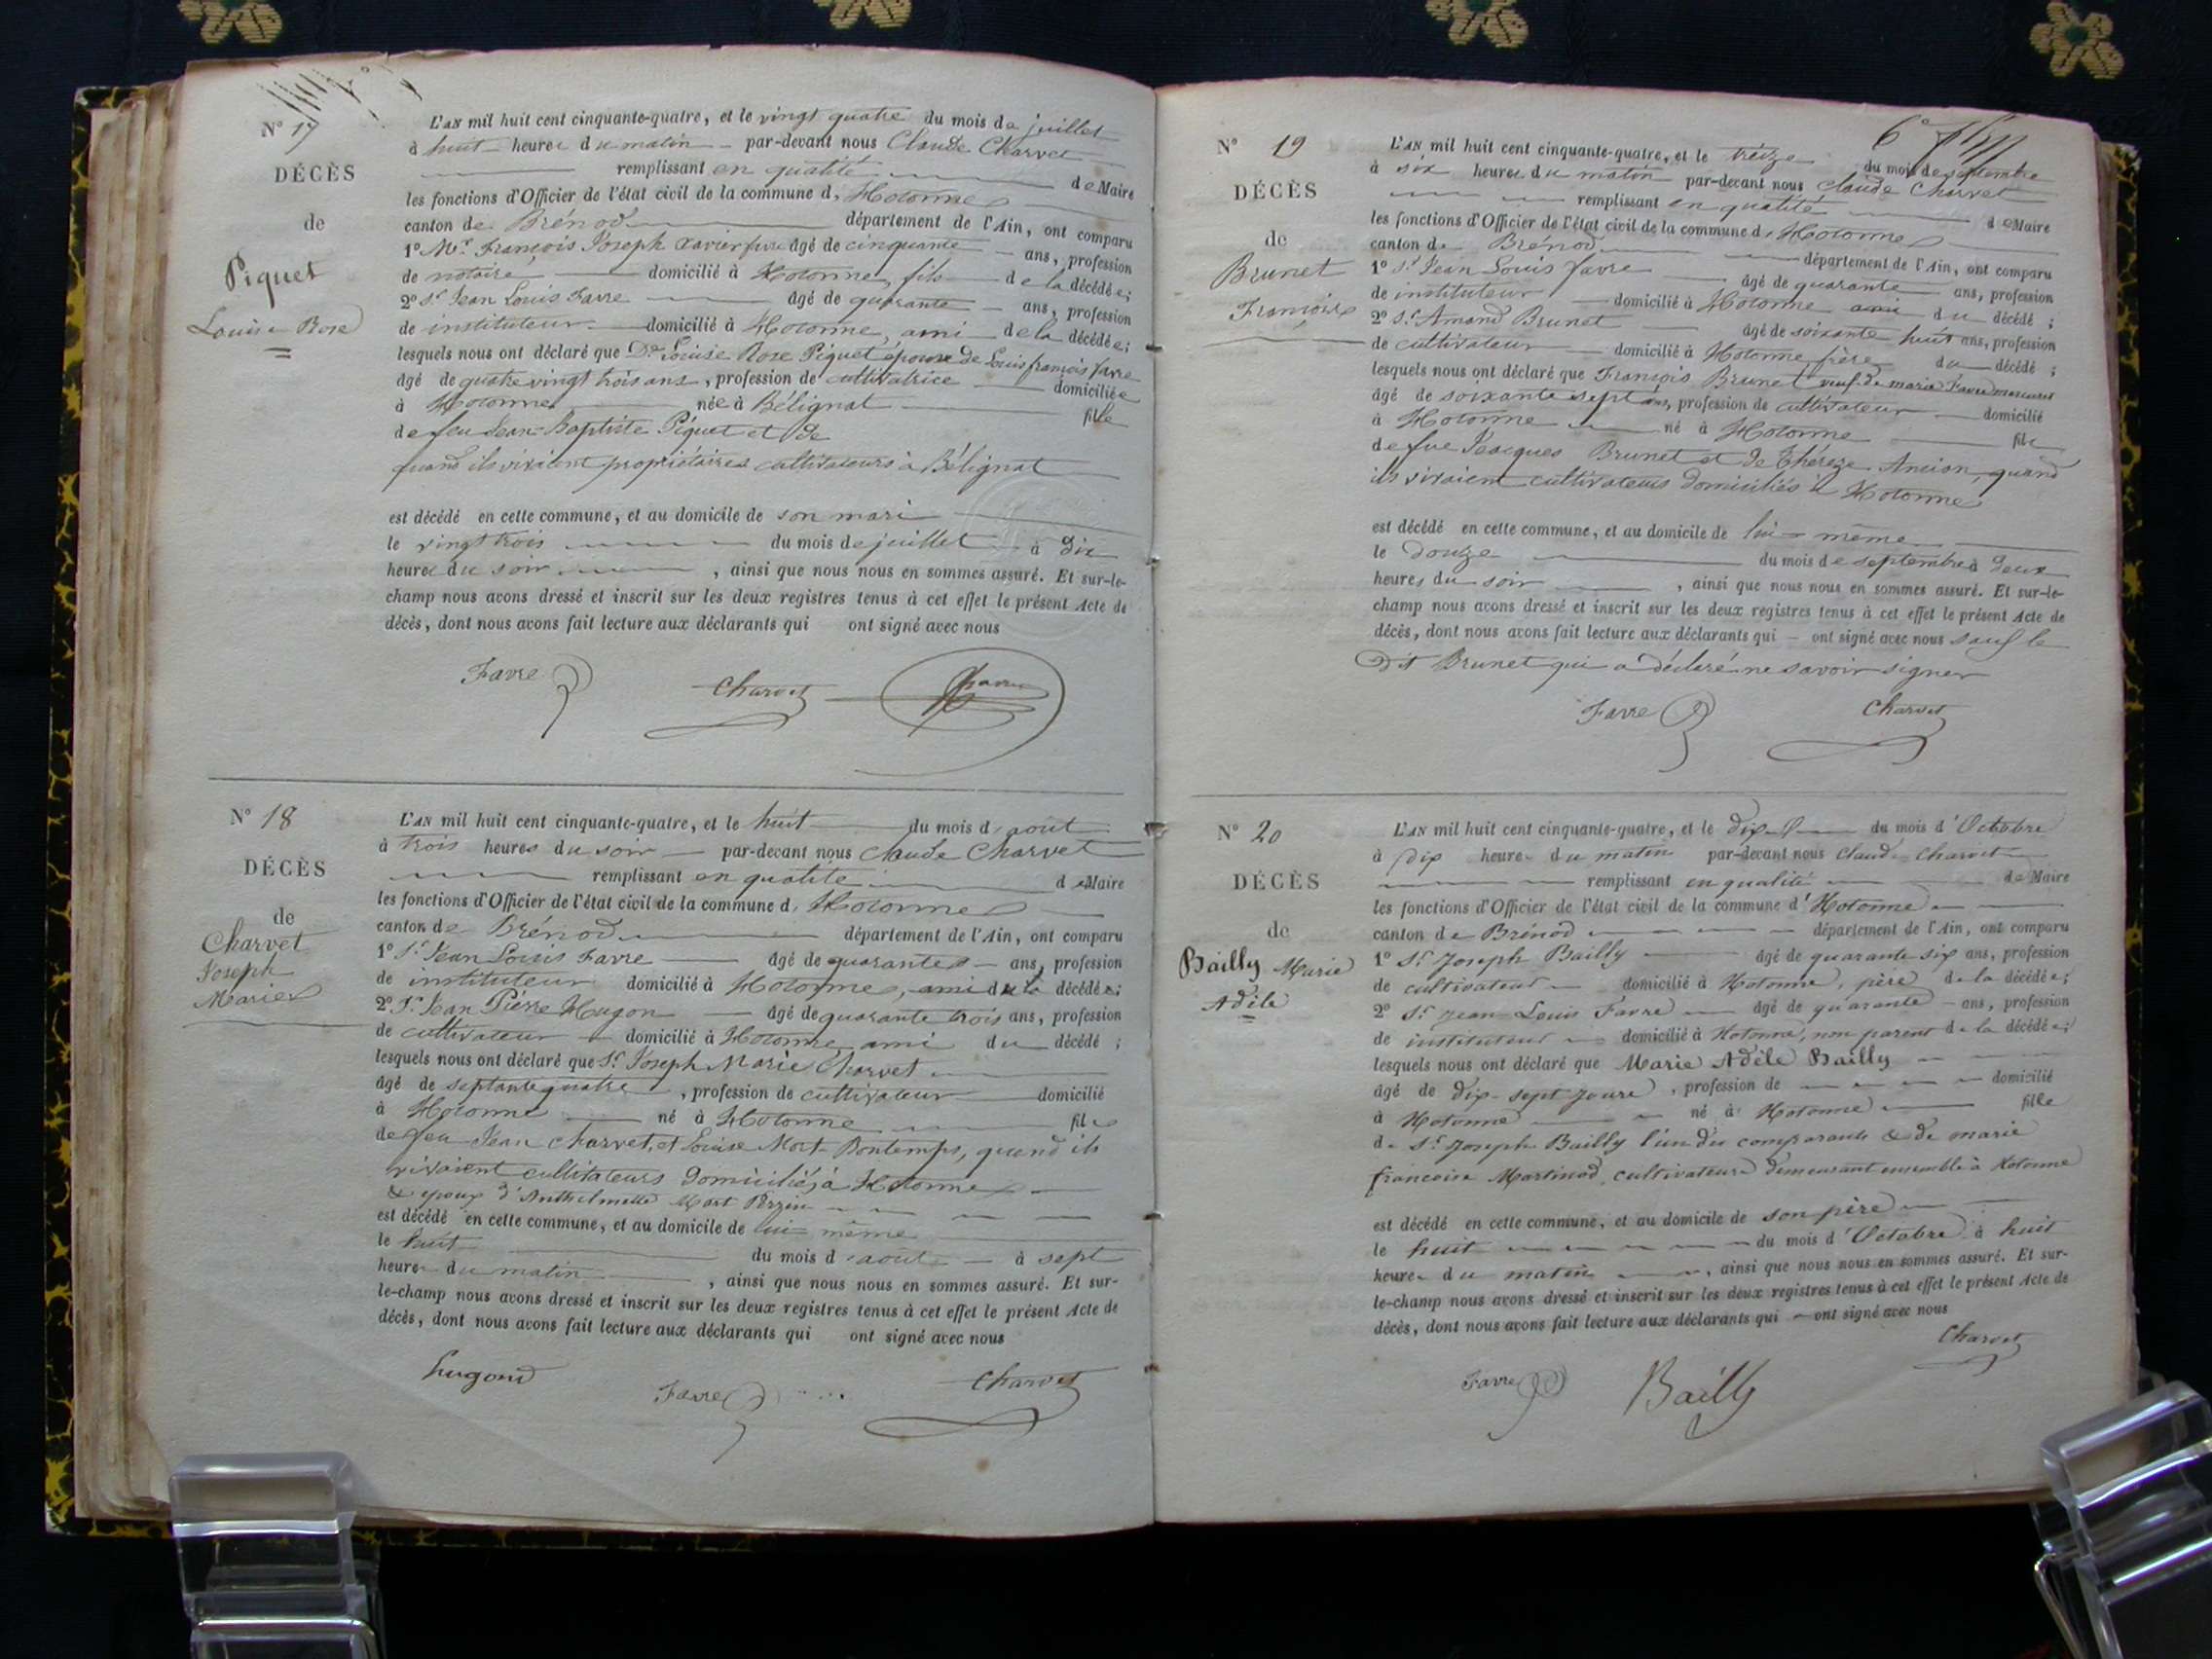 N° 17
DÉCÈS
de
Piquet
Louise Rose
L'AN mil huit cent cinquante-quatre, et le vingt quatre du mois de juillet
à huit heures du matin par-devant nous Claude Charvet
remplissant en qualité de Maire
les fonctions d'Officier de l'état civil de la commune d'Hotonne
canton de Brénod département de l'Ain, ont comparu
1° Mr. François Joseph Xavier favre âgé de cinquante ans, profession
de notaire domicilié à Hotonne, fils de la décédée;
2° Sr. Jean Louis Favre âgé de quarante ans, profession
de instituteur domicilié à Hotonne, ami de la décédée;
lesquels nous ont déclaré que De Louise Rose Piquet épouse de Louis françois favre
âgé de quatre vingt trois ans, profession de cultivatrice domiciliée
à Hotonne née à Bélignat fille
de feu Jean-Baptiste Piquet et de
quand ils vivaient propriétaires cultivateurs à Bélignat
est décédé en cette commune, et au domicile de son mari
le vingt trois du mois de juillet à dix
heures du soir, ainsi que nous nous en sommes assuré. Et sur-le-
champ nous avons dressé et inscrit sur les deux registres tenus à cet effet le présent Acte de
décès, dont nous avons fait lecture aux déclarants qui ont signé avec nous
Favre Charvet Favre
N° 18
DÉCÈS
de
Charvet
Joseph
Marie
L'AN mil huit cent cinquante-quatre, et le huit du mois d'août
à trois heures du soir par-devant nous Claude Charvet
remplissant en qualité de Maire
les fonctions d'Officier de l'état civil de la commune d'Hotonne
canton de Brénod département de l'Ain, ont comparu
1° Sr. Jean Louis Favre âgé de quarante ans, profession
de instituteur domicilié à Hotonne, ami du décédé;
2° Sr. Jean Pierre Hugon âgé de quarante trois ans, profession
de cultivateur domicilié à Hotonne ami du décédé;
lesquels nous ont déclaré que Sr. Joseph Marie Charvet
âgé de septante quatre, profession de cultivateur domicilié
à Hotonne né à Hotonne fils
de feu Jean Charvet, et Louise Mort-Bontemps, quand ils
vivaient cultivateurs domiciliés à Hotonne
& époux d'Anthelmette Mort Perrin
est décédé en cette commune, et au domicile de lui-même
le huit du mois d'août à sept
heures du matin, ainsi que nous nous en sommes assuré. Et sur-
le-champ nous avons dressé et inscrit sur les deux registres tenus à cet effet le présent Acte de
décès, dont nous avons fait lecture aux déclarants qui ont signé avec nous
hugond Favre Charvet
6e
N° 19
DÉCÈS
de
Brunet
François
L'AN mil huit cent cinquante-quatre, et le treize du mois de septembre
à six heures du matin par-devant nous Claude Charvet
remplissant en qualité de Maire
les fonctions d'Officier de l'état civil de la commune d'Hotonne
canton de Brénod département de l'Ain, ont comparu
1° Sr Jean Louis favre âgé de quarante ans, profession
de instituteur domicilié à Hotonne ami du décédé;
2° Sr. Amand Brunet âgé de soixante huit ans, profession
de cultivateur domicilié à Hotonne frère du décédé;
lesquels nous ont déclaré que François Brunet veuf de marie Favre
âgé de soixante sept ans, profession de cultivateur domicilié
à Hotonne né à Hotonne fils
de fue Jacques Brunet et de Thérèze Ancian, quand
ils vivaient cultivateurs domiciliés à Hotonne
est décédé en cette commune, et au domicile de lui-même
le douze du mois de septembre à deux
heures du soir, ainsi que nous nous en sommes assuré. Et sur-le-
champ nous avons dressé et inscrit sur les deux registres tenus à cet effet le présent Acte de
décès, dont nous avons fait lecture aux déclarants qui ont signé avec nous sauf le
dit Brunet qui a déclaré ne savoir signer
Favre Charvet
N° 20
DÉCÈS
de
Bailly Marie
Adèle
L'AN mil huit cent cinquante-quatre, et le dix du mois d'Octobre
à dix heures du matin par-devant nous Claude Charvet
remplissant en qualité de Maire
les fonctions d'Officier de l'état civil de la commune d'Hotonne
canton de Brénod département de l'Ain, ont comparu
1° Sr. Joseph Bailly âgé de quarante six ans, profession
de cultivateur domicilié à Hotonne, père de la décédée;
2° Sr. Jean Louis Favre âgé de quarante ans, profession
de instituteur domicilié à Hotonne, non parent de la décédée;
lesquels nous ont déclaré que Marie Adèle Bailly
âgé de dix-sept jours, profession de domicilié
à Hotonne né à Hotonne fille
de Sr. Joseph Bailly l'un des comparants & de marie
francoise Martinod, cultivateurs demeurant ensemble à Hotonne
est décédé en cette commune, et au domicile de son père
le huit du mois d'Octobre à huit
heures du matin, ainsi que nous nous en sommes assuré. Et sur-
le-champ nous avons dressé et inscrit sur les deux registres tenus à cet effet le présent Acte de
décès, dont nous avons fait lecture aux déclarants qui ont signé avec nous
Charvet
Favre Bailly